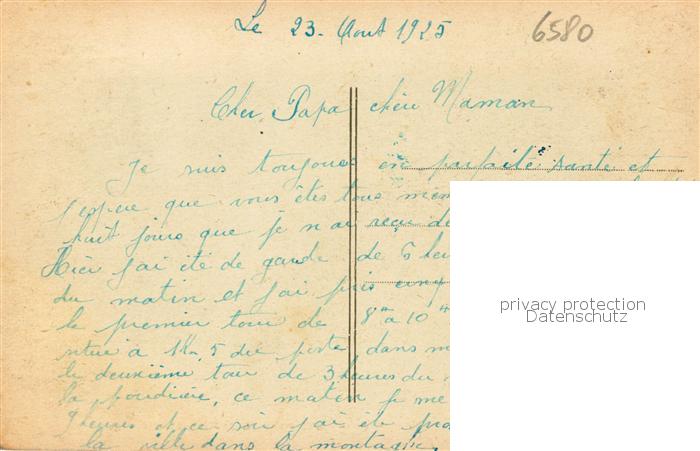 Le 23 - Aout 1925
6580
Cher Papa chère Maman
Je suis toujours en parfaite santé et
j'espère que vous êtes tous
huit jours que je n'ai reçu
Hier j'ai été de garde de 5
du matin et j'ai pris
le premier tour de 8 à 10
à 1 Km,5 du poste dans
le deuxième tour de 3 heures du
la poudrière, ce matin je me
9 heures et ce soir j'ai été
la ville dans la montagne.
privacy protection
Datenschutz